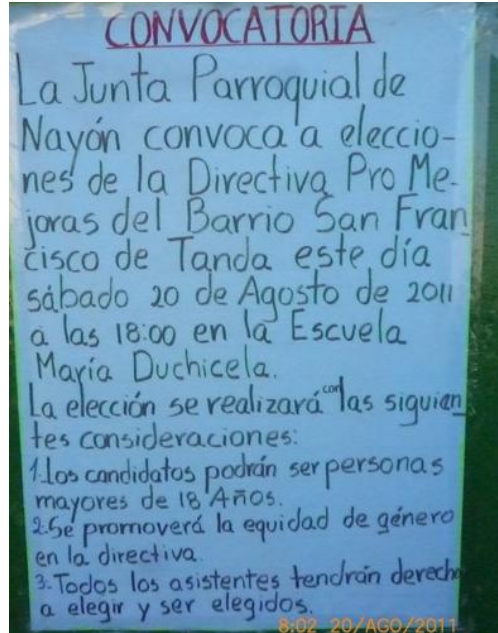 CONVOCATORIA
La Junta Parroquial de
Nayón convoca a eleccio-
nes de la Directiva Pro Me-
joras del Barrio San Fran
cisco de Tanda este día
sábado 20 de Agosto de 2011
a las 18:00 en la Escuela
María Duchicela.
La elección se realizará con las siguien
tes consideraciones:
1. Los candidatos podrán ser personas
mayores de 18 Años.
2. Se promoverá la equidad de género
en la directiva.
3. Todos los asistentes tendrán derecho
a elegir y ser elegidos.
8:02 20/AGO/2011